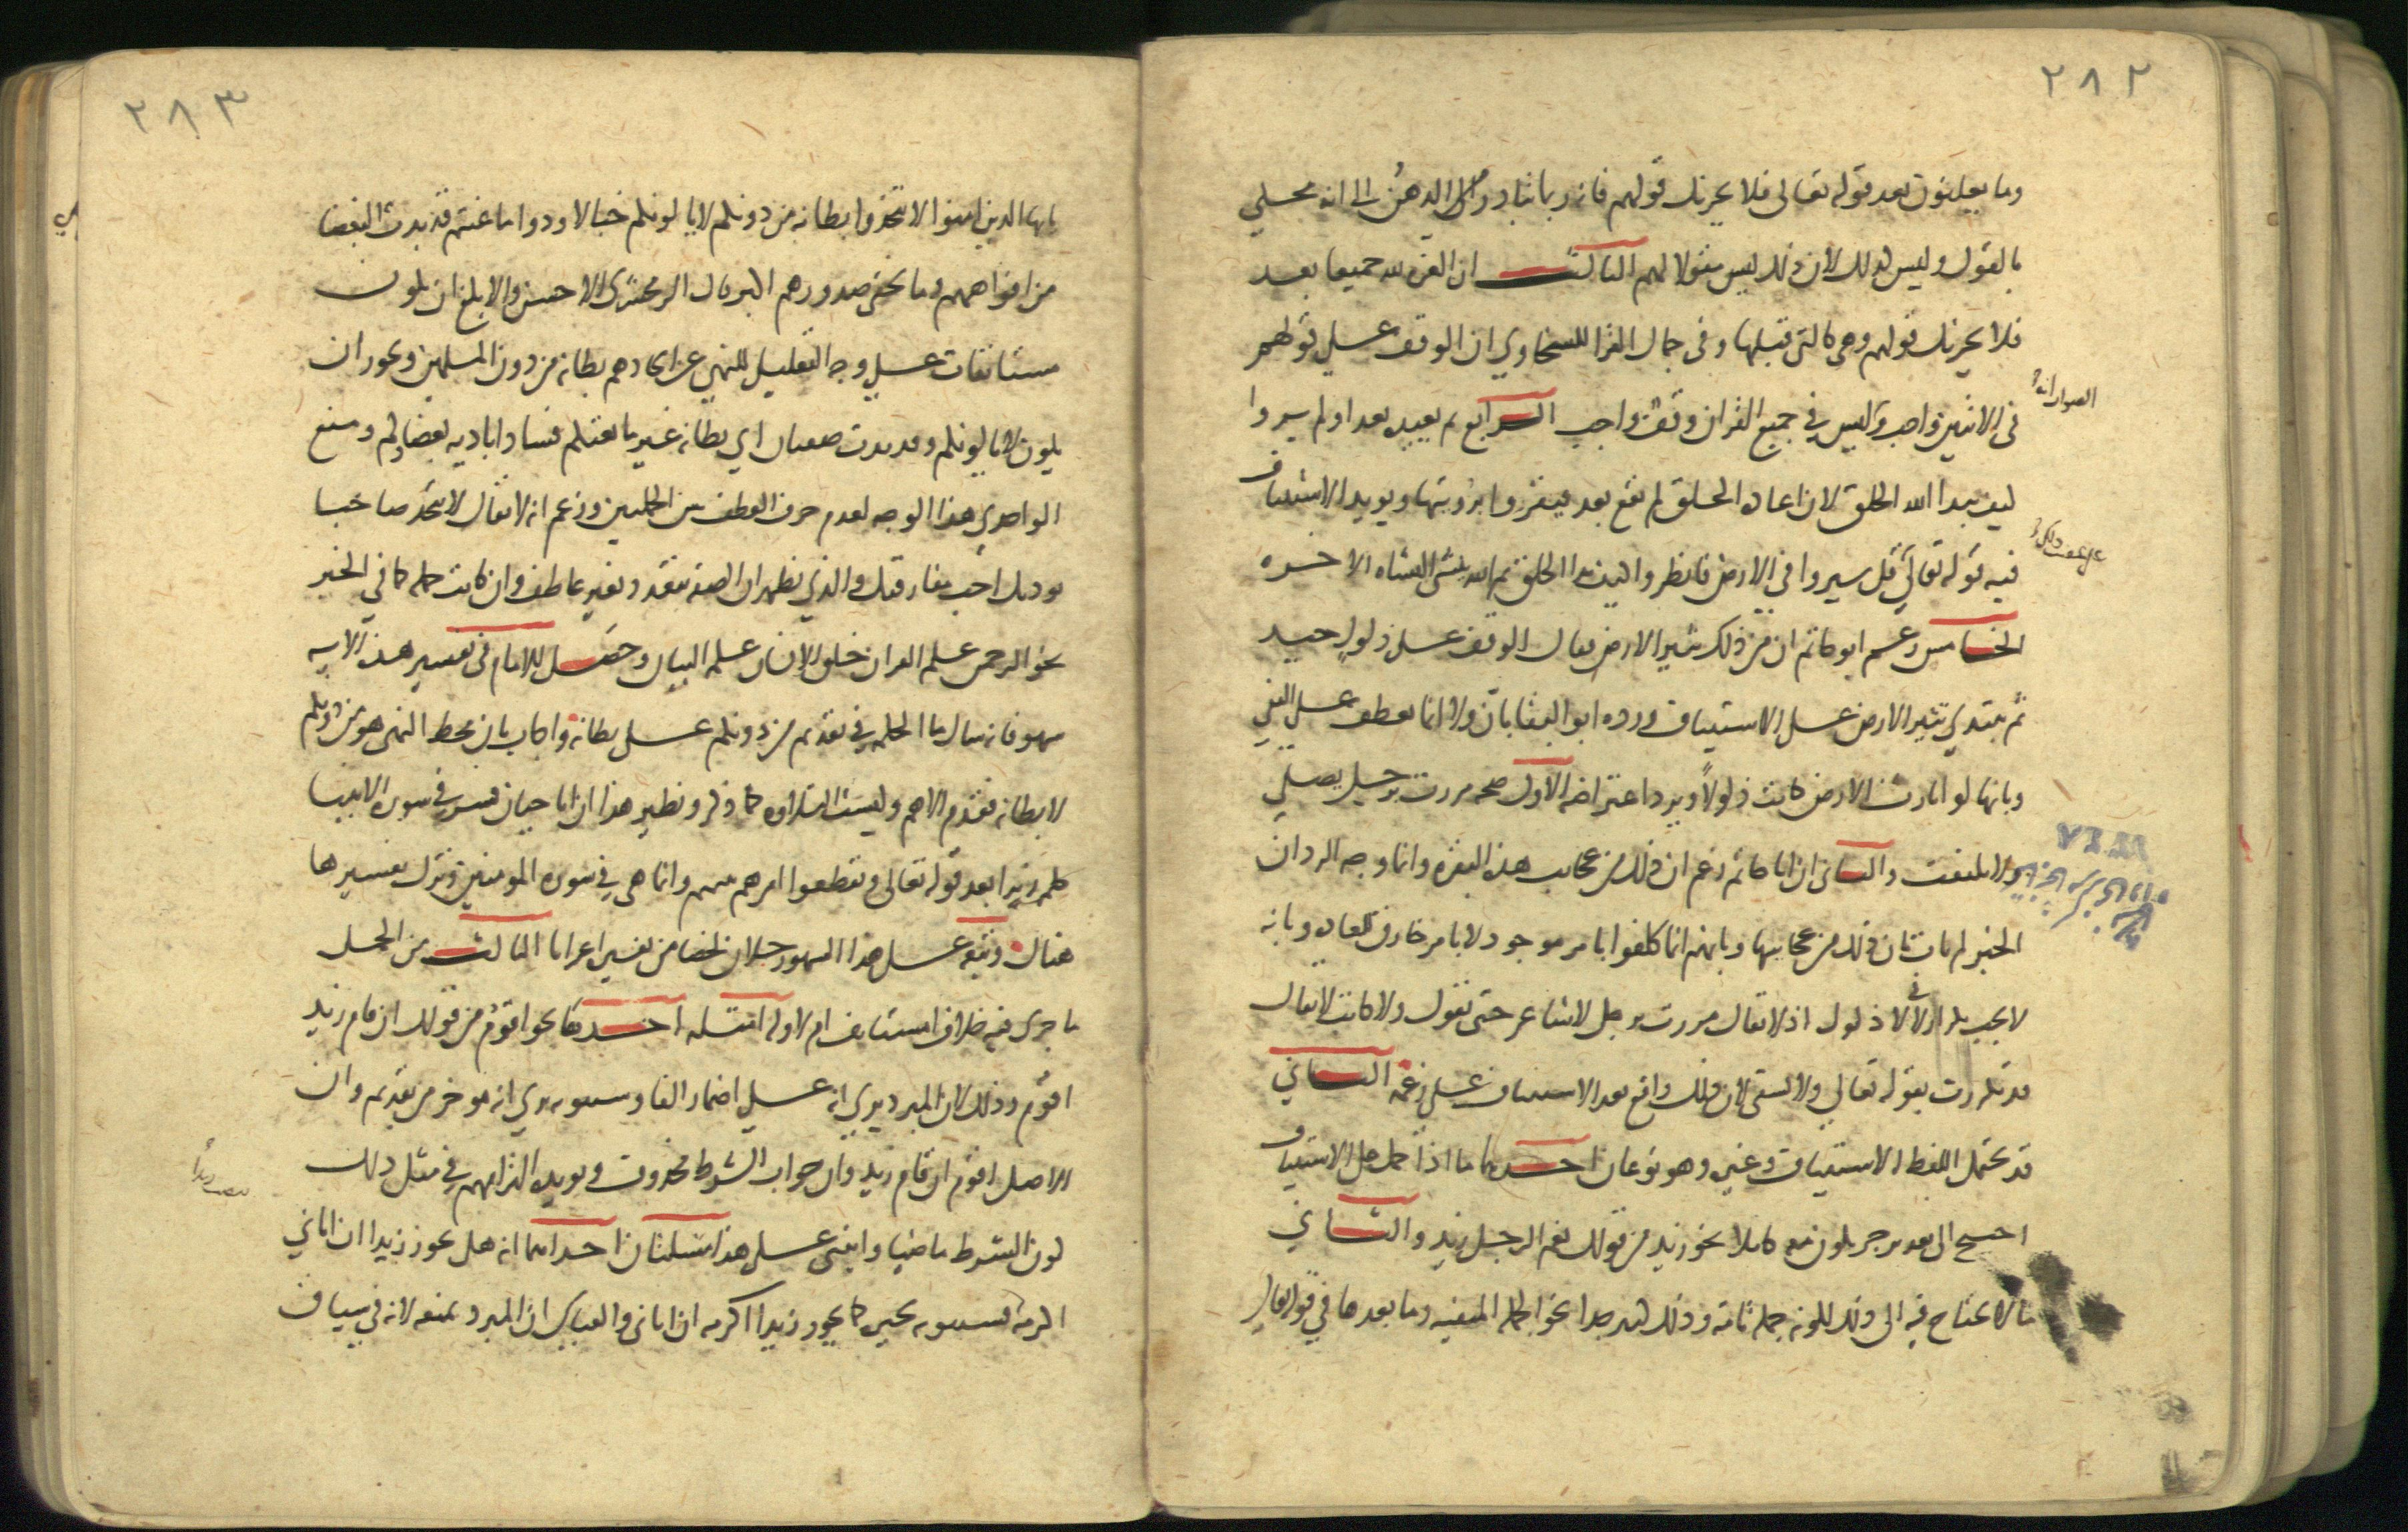 ٢٨٢
وما يعلنون بعد قوله تعالى فلا يحزنك قولهم فانه ربما يتبادر الى الذهن الى انه محكي
بالقول وليس كذلك لان ذلك ليس مقولا لهم الثالث ان العزة لله جميعا بعد
فلا يحزنك قولهم وهي كالتي قبلها وفي جمال القرا للسخاوي ان الوقف على قولهم
في الاثنين واجب وليس في جميع القران وقف واجب الرابع ثم يعيده بعد اولم يروا
كيف يبدا الله الخلق لان اعادة الخلق لم تقع بعد فيقروا برؤيتها ويؤيد الاستئناف
فيه قوله تعالى قل سيروا في الارض فانظروا كيف بدا الخلق ثم الله ينشئ النشاة الاخرة
الخامس زعم ابو حاتم ان من ذلك تثير الارض فقال الوقف على ذلول جيد
ثم يبتدي تثير الارض على الاستيناف ورده ابو البقا بان ولا انما تعطف على النفي
وبانها لو اثارت الارض كانت ذلولا ويرد اعتراضه الاول صحة مررت برجل يصلي
ولا يلتفت والثاني ان ابا حاتم زعم ان ذلك من عجايب هذه البقرة وانما وجه الرد ان
الخبر لم يات بان ذلك من عجايبها وبانهم انما كلفوا بامر موجود لا بامر خارق للعادة وبانه
لا يجب تكرار لا في لا ذلول اذ لا يقال مررت برجل لا شاعر حتى تقول ولا كاتب لا يقال
قد تكررت بقوله تعالى ولا تسقي لان ذلك واقع بعد الاستيناف على زعمه الثاني
قد يحتمل اللفظ الاستيناف وغيره وهو نوعان احدهما ما اذا حمل على الاستيناف
احتيج الى تقدير جزء يكون معه كلاما نحو زيد من قولك نعم الرجل زيد والثاني
ما لا يحتاج فيه الى ذلك لكونه جملة تامة وذلك كثير جدا نحو الجملة المنفية وما بعدها في قوله تعالى
٢٨٣
يايها الذين امنوا لا تتخذوا بطانة من دونكم لا يالونكم خبالا ودوا ما عنتم قد بدت البغضا
من افواههم وما تخفي صدورهم اكبر قال الزمخشري الاحسن والابلغ ان تكون
مستانفات على وجه التعليل للنهي عن اتخاذهم بطانة من دون المسلمين ويجوز ان
يكون لا يالونكم وقد بدت صفتان اي بطانة غير مانعتكم فسادا بادية بغضاوهم ومنع
الواحدي هذا الوجه لعدم حرف العطف بين الجملتين وزعم انه لا يقال لا تتخذ صاحبا
يوذيك احب مفارقتك والذي يظهر ان الصفة تتعدد بغير عاطف وان كانت جملة كما في الخبر
نحو الرحمن علم القران خلق الانسان علمه البيان وحصل للامام في تفسير هذه الاية
سهو فانه سال ما الحكمة في تقديم من دونكم على بطانة واجاب بان محط النهي هو من دونكم
لا بطانة فقدم الاهم وليست التلاوة كما ذكر ونظير هذا ان ابا حيان فسر في سورة الانبيا
كلمة زبرا بعد قوله تعالى وتقطعوا امرهم بينهم وانما هي في سورة المومنين وترك تفسيرها
هناك وتبعه على هذا السهو رجلان لخصا من تفسيره اعرابا الثالث من الجمل
ما جرى فيه خلاف امستانف ام لا وله امثلة احدها نحو اقوم من قولك ان قام زيد
اقوم وذلك لان المبرد يرى انه على اضمار الفا وسيبويه يرى انه موخر من تقديم وان
الاصل اقوم ان قام زيد وان جواب الشرط محذوف ويويده التزامهم في مثل ذلك
كون الشرط ماضيا وابتنى على هذا مسئلتان احداهما انه هل يجوز زيدا ان اتاني
اكرمه فسيبويه يجيزه كما يجيز زيدا اكرمه ان اتاني والقياس ان المبرد يمنعه لانه في سياق